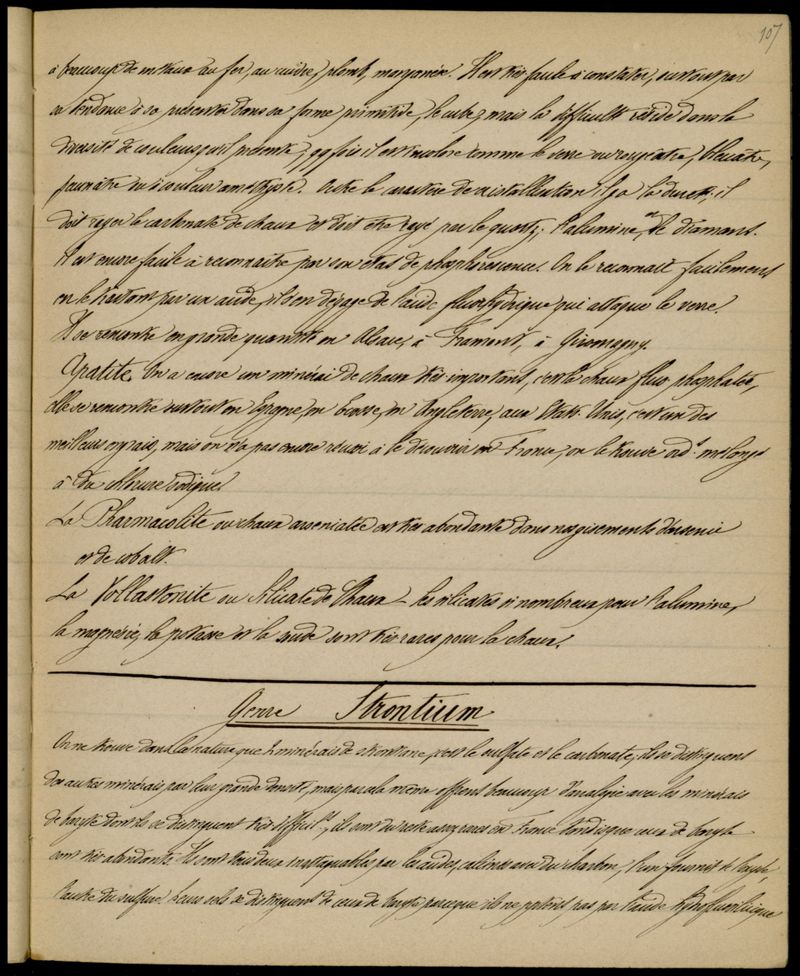 107
à beaucoup de métaux au fer, au cuivre, plomb, manganèse. Il est très facile à constater, surtout par
sa tendance à se présenter dans sa forme primitive, le cube, mais la difficulté réside dans la
diversité de couleurs qu'il présente, qqfois il est incolore comme le verre ou rougeâtre, bleuâtre,
jaunâtre ou à couleur améthyste. Outre le caractère de cristallisation il y a la dureté, il
doit rayer le carbonate de chaux et doit être rayé par le quartz, l'alumine, et le diamant.
Il est encore facile à reconnaître par son état de phosphorescence. On le reconnait facilement
en le traitant par un acide, il s'en dégage de l'acide fluorhydrique qui attaque le verre.
Il se rencontre en grande quantité en Alsace, à Framont, à Giromagny.
Apatite. On a encore un minérai de chaux très important, c'est la chaux fluo phosphatée,
elle se rencontre surtout en Espagne, en Angleterre, aux Etats-Unis, c'est un des
meilleurs engrais, mais on n'a pas encore réussi à le découvrir en France, on le trouve ord.t mélangé
à du chlorure sodique.
La Pharmacolite ou chaux arseniatée est très abondante dans nos gisements d'arsenic
et de cobalt.
La Vollastonite ou Silicate de Chaux – les silicates si nombreux pour l'alumine,
la magnésie, la potasse et la soude sont très rares pour la chaux.
Genre Strontium
On ne trouve dans la nature que 2 minérais de strontiane, c'est le sulfate et le carbonate, ils se distinguent
des autres minérais par leur grande densité, mais par cela même offrent beaucoup d'analogie avec les minérais
de baryte dont ils se distinguent très difficil.t, ils sont du reste assez rares en France tandis que ceux de baryte
sont très abondants. Ils sont tous deux inattaquables par les acides, calcinés avec du charbon, l'un fournit de la baryte
l'autre du sulfure. Leurs sels se distinguent de ceux de baryte parce que ils ne pptent pas par l'acide hydrofluosilicique